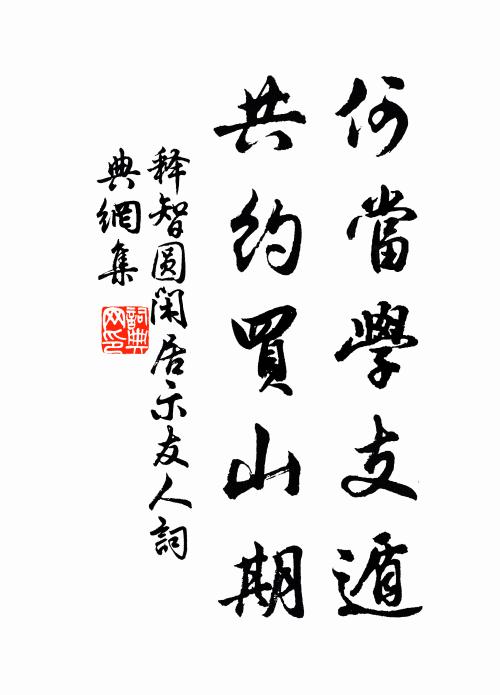 何當學支遁
共約買山期
释智圆閑居示友人詞
典網集
詞典
网印